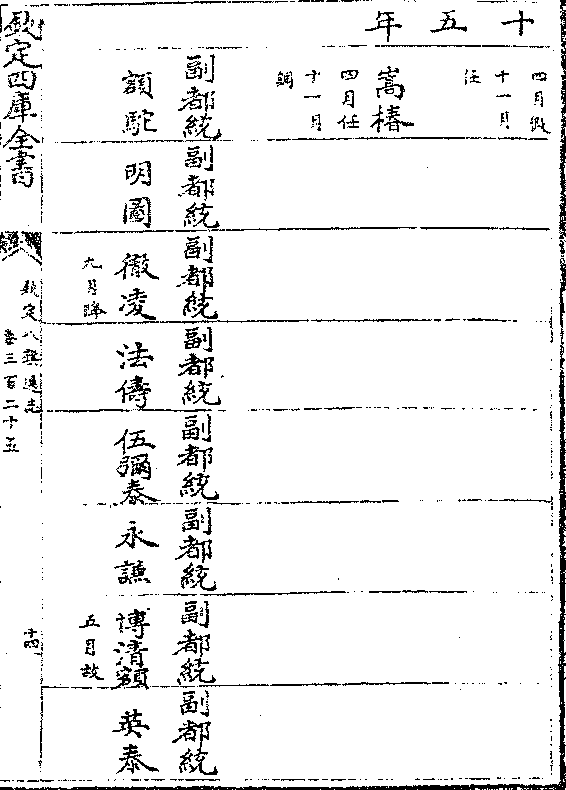 十五年
四月假
十一月
任
嵩椿
四月任
十一月
調
副都統
額駝
副都統
明圖
副都統
徹凌
九月降
副都統
法儔
副都統
伍彌泰
副都統
永謙
副都統
博清額
五月故
副都統
英泰
欽定四庫全書
欽定八旗通志
卷三百二十五
十四